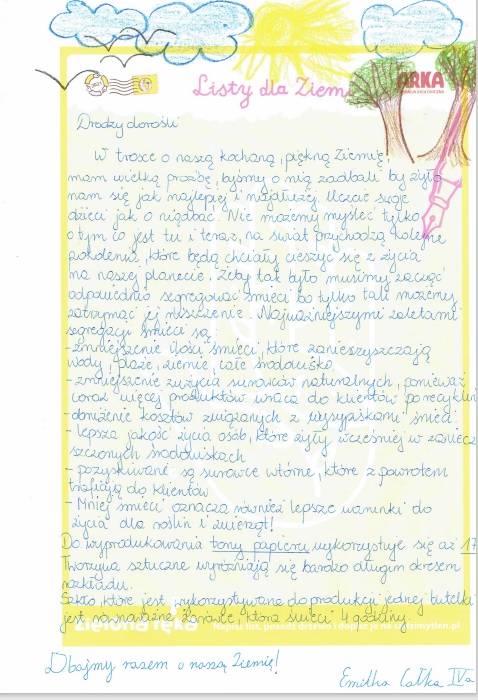 Listy dla Ziemi
ARKA
Drodzy dorośli
W trosce o naszą kochaną, piękną Ziemię,
mam wielką prośbę, byśmy o nią zadbali by żyło
nam się jak najlepiej i najdłużej. Uczcie swoje
dzieci jak o nią dbać. Nie możemy myśleć tylko
o tym co jest tu i teraz, na świat przychodzą kolejne
pokolenia, które będą chciały cieszyć się z życia
na naszej planecie. Żeby tak było musimy zacząć
odpowiednio segregować śmieci bo tylko tak możemy
zatrzymać jej niszczenie. Najważniejszymi zaletami
segregacji śmieci są
- zmniejszenie ilości śmieci, które zanieczyszczają
wody, plaże, ziemie, całe środowisko
- zmniejszenie zużycia surowców naturalnych, ponieważ
coraz więcej produktów wraca do klientów po recyklin
- obniżenie kosztów związanych z wysypiskami śmieci
- lepsza jakość życia osób, które żyły wcześniej w zaniecz
szczonych środowiskach
- pozyskiwane są surowce wtórne, które z powrotem
trafiają do klientów
- Mniej śmieci oznacza również lepsze warunki do
życia dla roślin i zwierząt!
Do wyprodukowania tony papieru wykorzystuje się aż 17
Tworzywa sztuczne wyróżniają się bardzo długim okresem
rozkładu.
Szkło, które jest wykorzystywane do produkcji jednej butelki
jest równoważne żarówce, która świeci 4 godziny.
zielona ręka Napisz list, posadź drzewo i dopisz je na
Dbajmy razem o naszą Ziemię!
Emilka Całka IVa